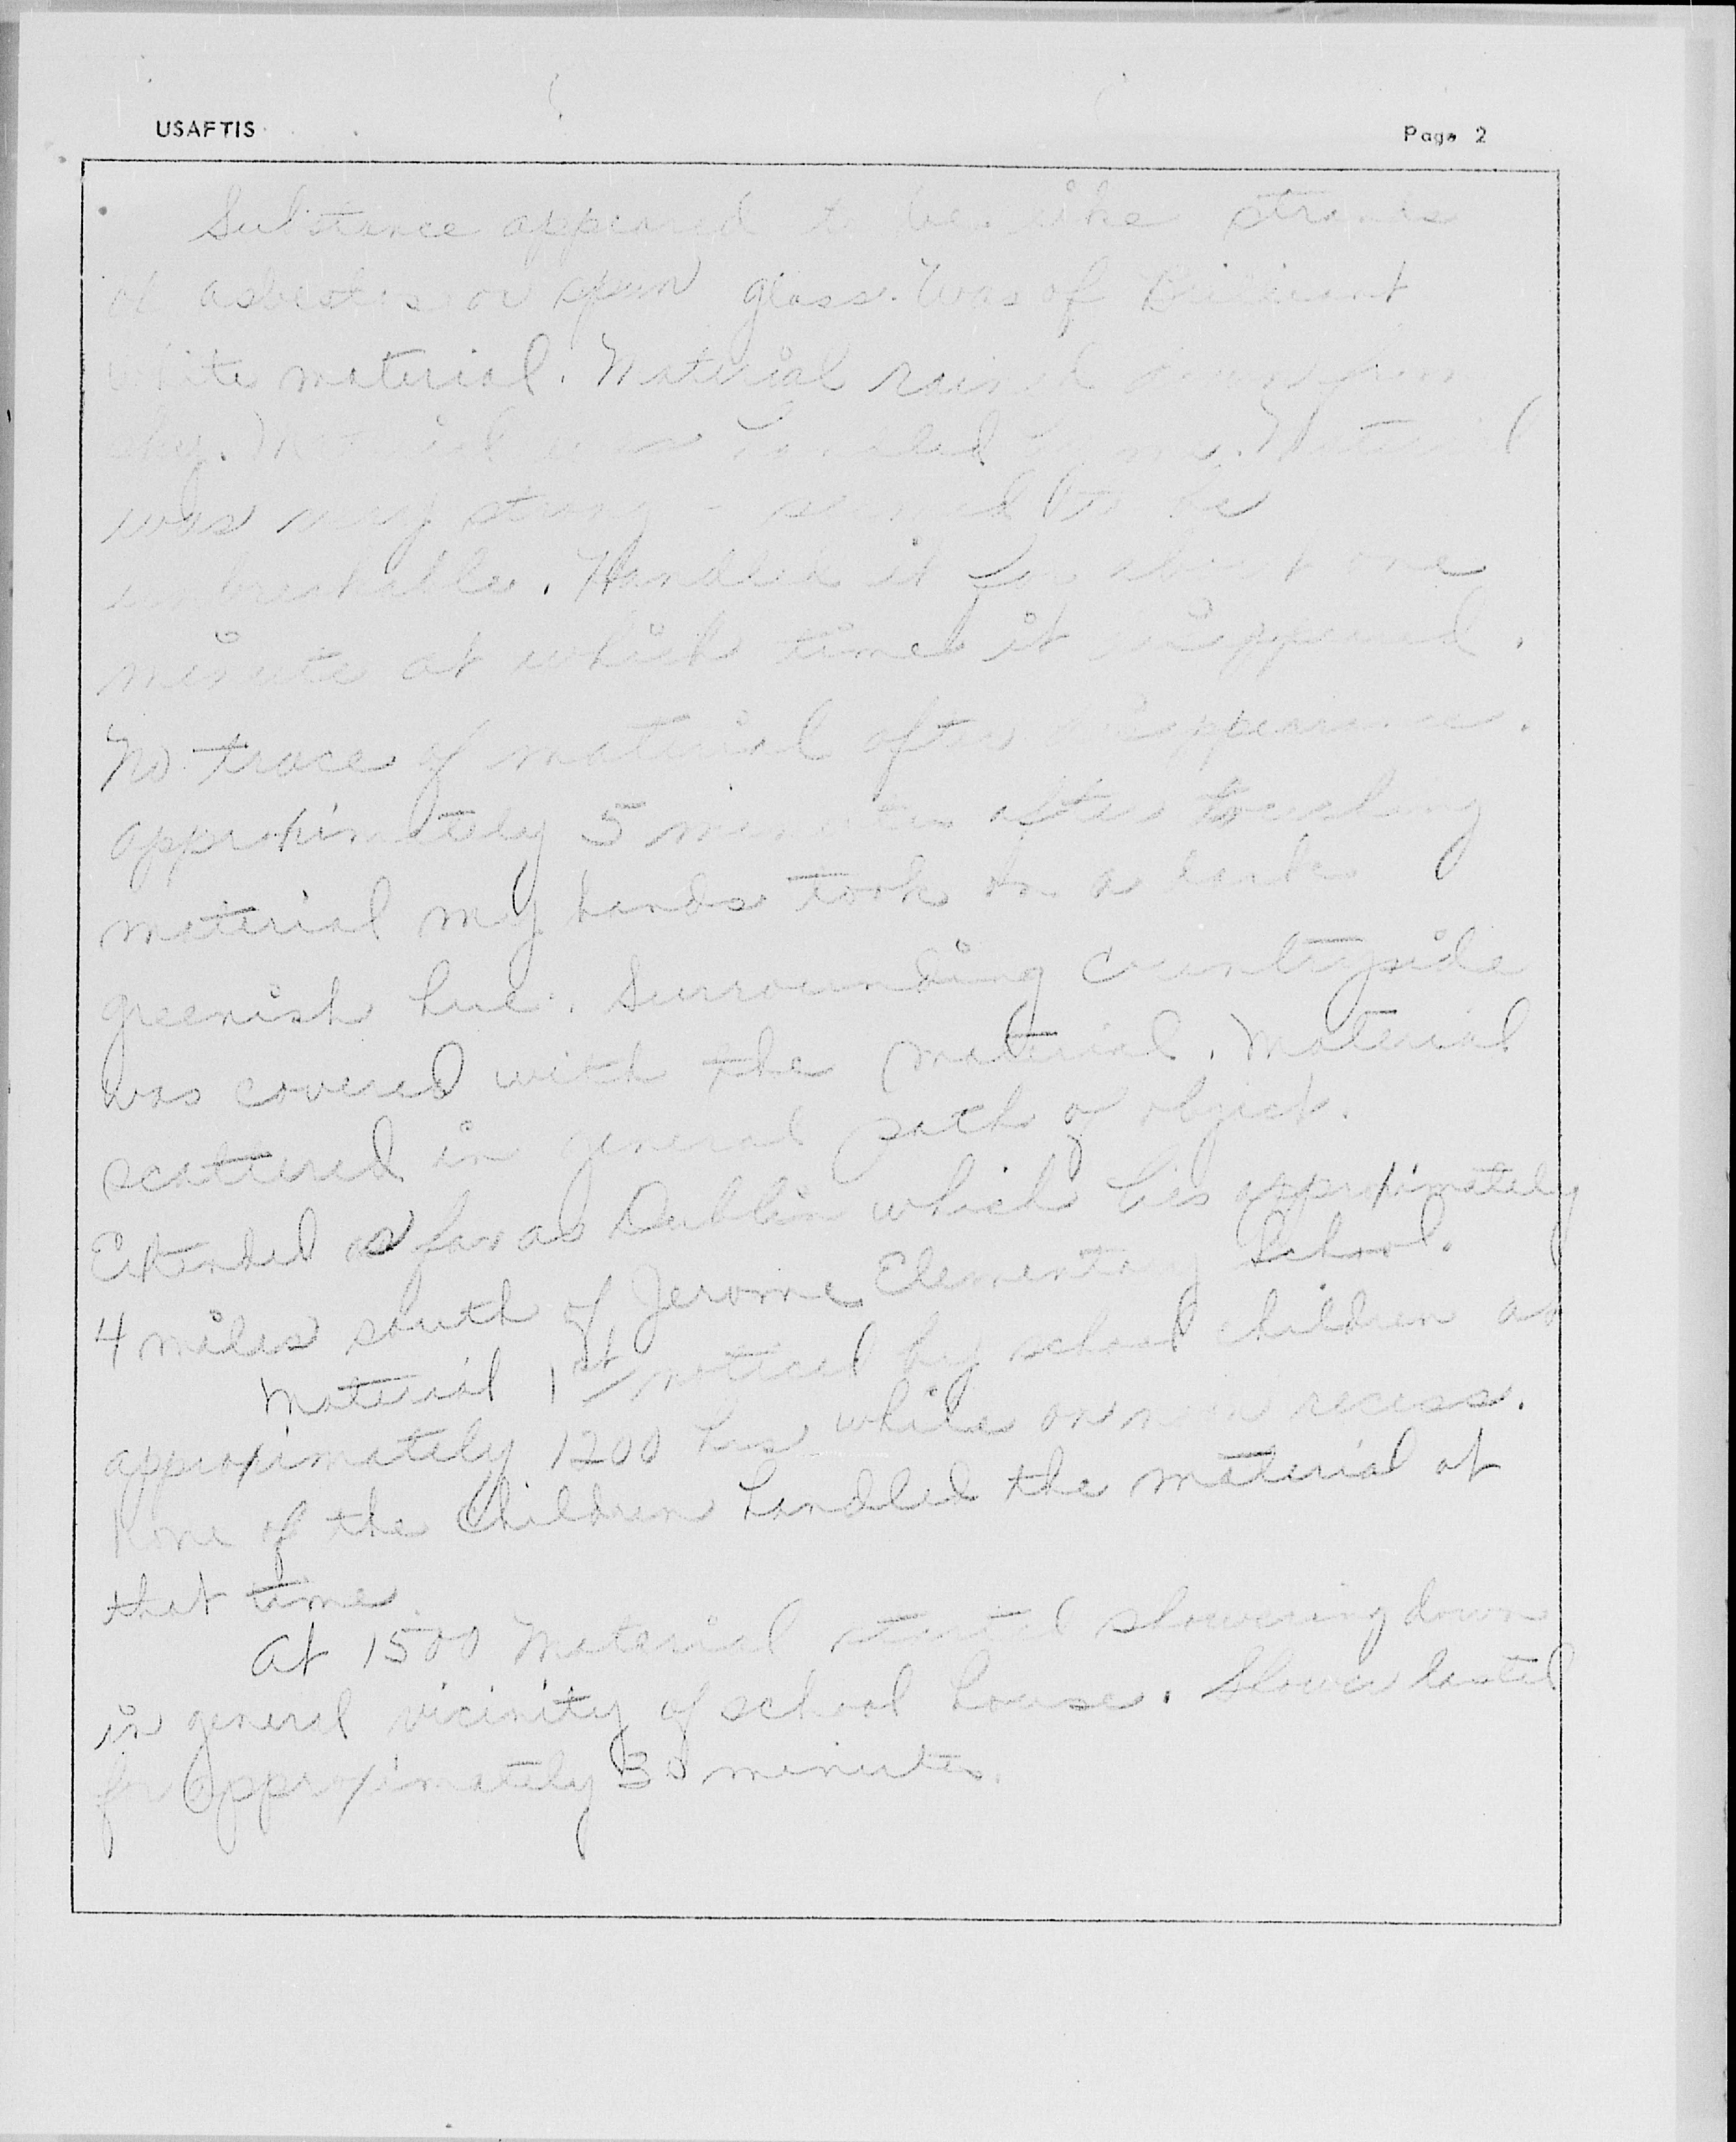 USAFTIS
Page 2
Substance appeared to be like strands
of asbestos or spun glass. Was of Brilliant
white material. Material rained down from
sky. Material was handled by me. Material
was very strong - seemed to be
unbreakable. Handled it for about one
minute at which time it disappeared.
No trace of material after disappearance.
approximately 5 minutes after touching
material my hands took on a dark
greenish hue. Surrounding countryside
was covered with the material. Material
scattered in general path of object.
Extended as far as Dublin which lies approximately
4 miles south of Jerome Elementary School.
Material 1st noticed by school children at
approximately 1200 hrs while on noon recess.
None of the children handled the material at
that time.
At 1500 Material started showering down
in general vicinity of school house. Shower lasted
for approximately 30 minutes.